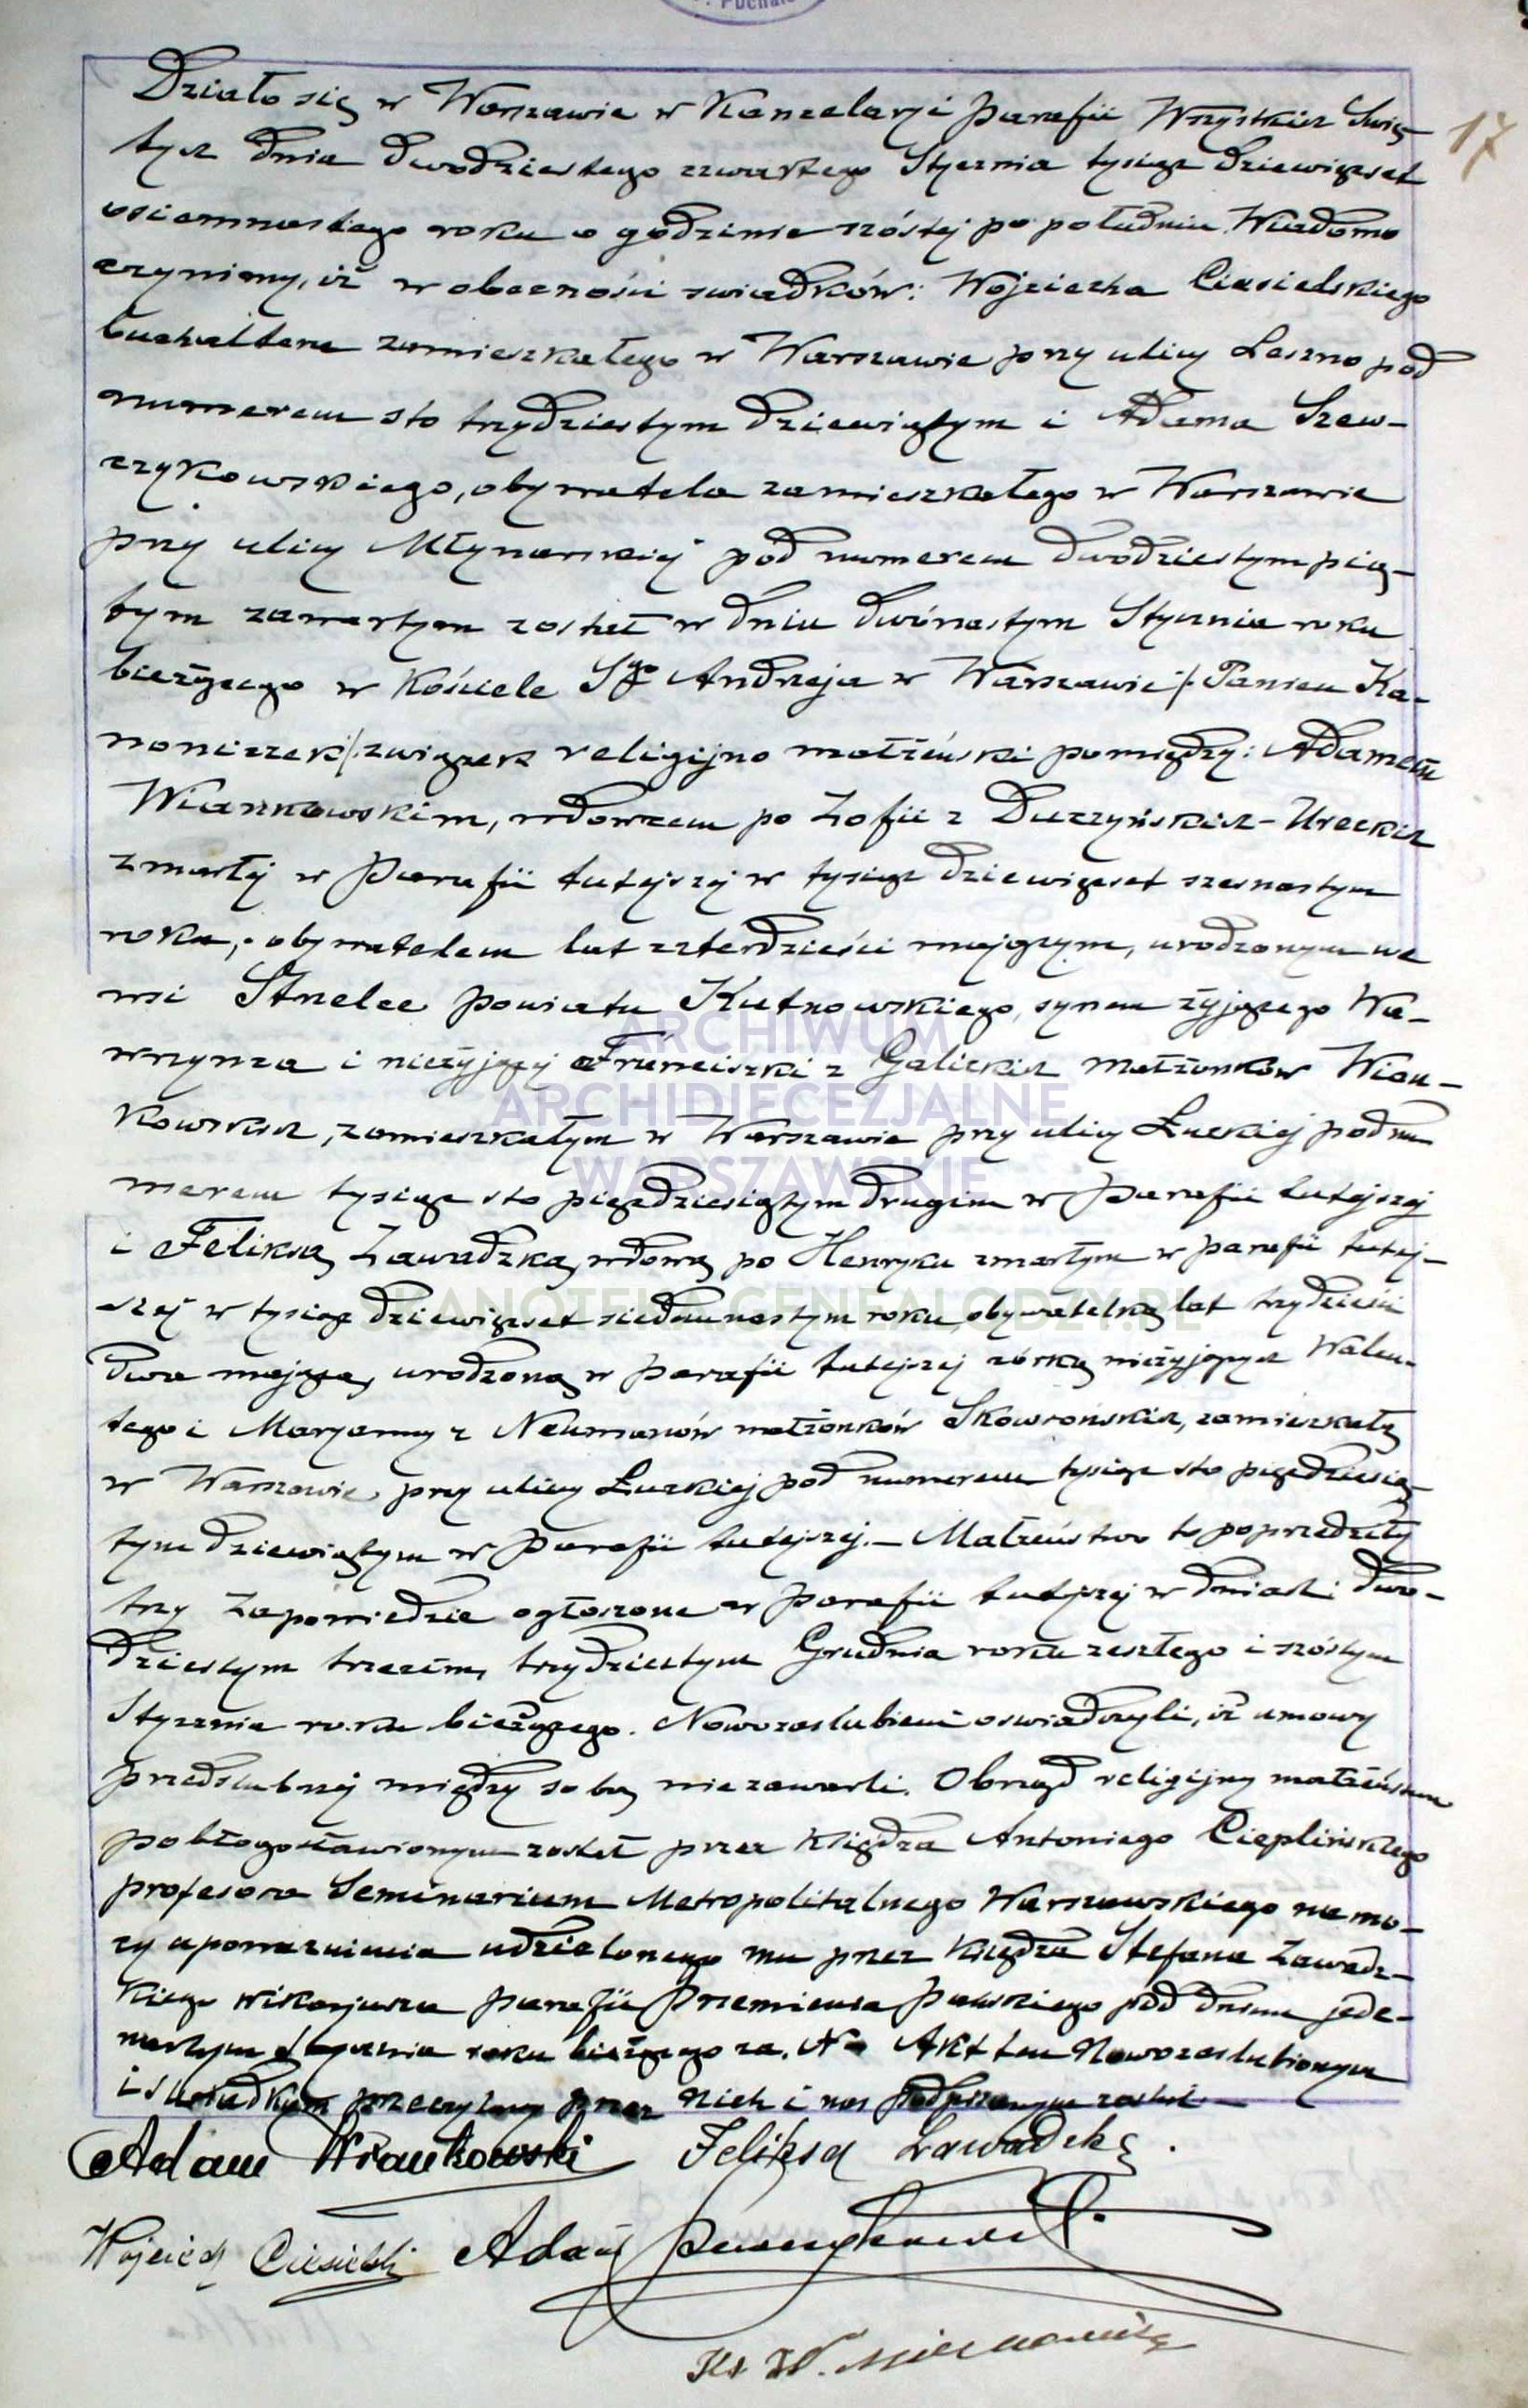 17
Działo się w Warszawie w Kancelaryi Parafii Wszystkich Świę-
tych dnia dwudziestego czwartego Stycznia tysiąc dziewięćset
osiemnastego roku o godzinie szóstej po południu. Wiadomo
czynimy, iż w obecności świadków: Wojciecha Ciesielskiego
buchaltera zamieszkałego w Warszawie przy ulicy Leszno pod
numerem sto trzydziestym dziewiątym i Adama Szew-
czykowskiego, obywatela zamieszkałego w Warszawie
przy ulicy Młynarskiej pod numerem dwudziestym pią-
tym zawartym został w dniu dwónastym Stycznia roku
bieżącego w Kościele Sgo Andrzeja w Warszawie /. Panien Ka-
noniczek /. związek religijno małżeński pomiędzy: Adamem
Wiankowskim, wdowcem po Zofii z Duczyńskich-Ureckich
zmarłej w Parafii tutejszej w tysiąc dziewięćset szesnastym
roku, obywatelem lat czterdzieści mającym, urodzonym we
wsi Strzelce powiatu Kutnowskiego, synem żyjącego Wa-
wrzyńca i nieżyjącej Franciszki z Galickich małżonków Wian-
kowskich, zamieszkałym w Warszawie przy ulicy Łuckiej pod nu
merem tysiąc sto pięćdziesiątym drugim w Parafii tutejszej
i Feliksą Zawadzką, wdową po Henryku zmarłym w parafii tutej-
szej w tysiąc dziewięćset siedmnastym roku, obywatelką lat trzydzieści
dwa mającą, urodzoną w Parafii tutejszej córką nieżyjących Walen-
tego i Maryanny z Neumanów małżonków Skowrońskich, zamieszkałą
w Warszawie przy ulicy Łuckiej pod numerem tysiąc sto pięćdziesią-
tym dziewiątym w Parafii tutejszej. – Małżeństwo to poprzedziły
trzy zapowiedzie ogłoszone w Parafii tutejszej w dniach: dwu-
dziestym trzecim, trzydziestym Grudnia roku zeszłego i szóstym
Stycznia roku bieżącego. Nowozaślubieni oświadczyli, iż umowy
przedślubnej między sobą niezawarli. Obrząd religijny małżeństwa
pobłogosławionym został przez Księdza Antoniego Cieplińskiego
profesora Seminarium Metropolitalnego Warszawskiego na mo-
cy upoważnienia udzielonego mu przez Księdza Stefana Zawadz-
kiego wikarjusza parafii Przemienia Pańskiego pod dniem jede-
nastym Stycznia roku bieżącego za. No Akt ten Nowozaślubionym
i świadkom przeczytany przez nich i nas podpisanym został. –
Adam Wiankowski Feliksa Zawadzka.
Wojciech Ciesielski Adam Szewczykowski
Ks W.
ARCHIWUM
ARCHIDIECEZJALNE
WARSZAWSKIE